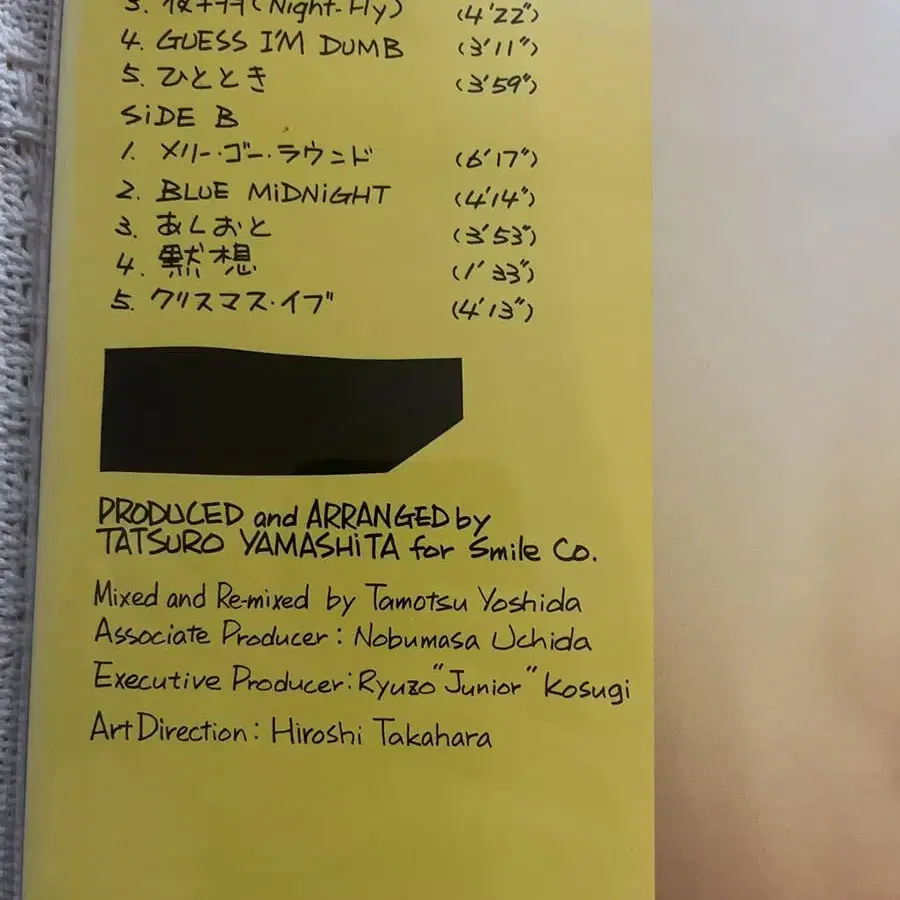 3. 夜翔(Night-Fly) (4'22")
4. GUESS I'M DUMB (3'11")
5. ひととき (3'59")
SiDE B
1. メリー・ゴー・ラウンド (6'17")
2. BLUE MiDNiGHT (4'14")
3. あしおと (3'53")
4. 黙想 (1'33")
5. クリスマス・イブ (4'13")
PRODUCED and ARRANGED by
TATSURO YAMASHiTA for Smile Co.
Mixed and Re-mixed by Tamotsu Yoshida
Associate Producer: Nobumasa Uchida
Executive Producer: Ryuzo "Junior" Kosugi
Art Direction: Hiroshi Takahara